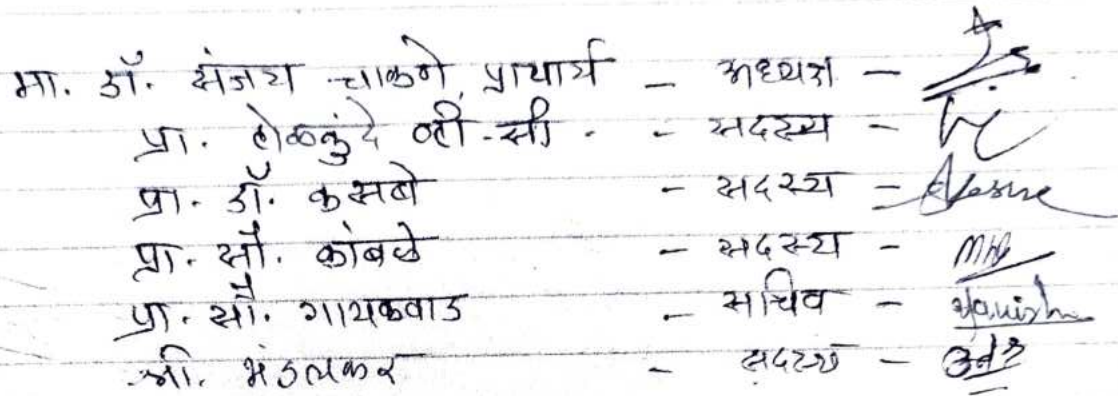 मा. डॉ. संजय चाकणे, प्राचार्य - अध्यक्ष -
प्रा. होळकुंदे व्ही.सी. - सदस्य -
प्रा. डॉ. कसबे - सदस्य -
प्रा. सौ. कांबळे - सदस्य -
प्रा. सौ. गायकवाड - सचिव -
श्री. भंडलकर - सदस्य -